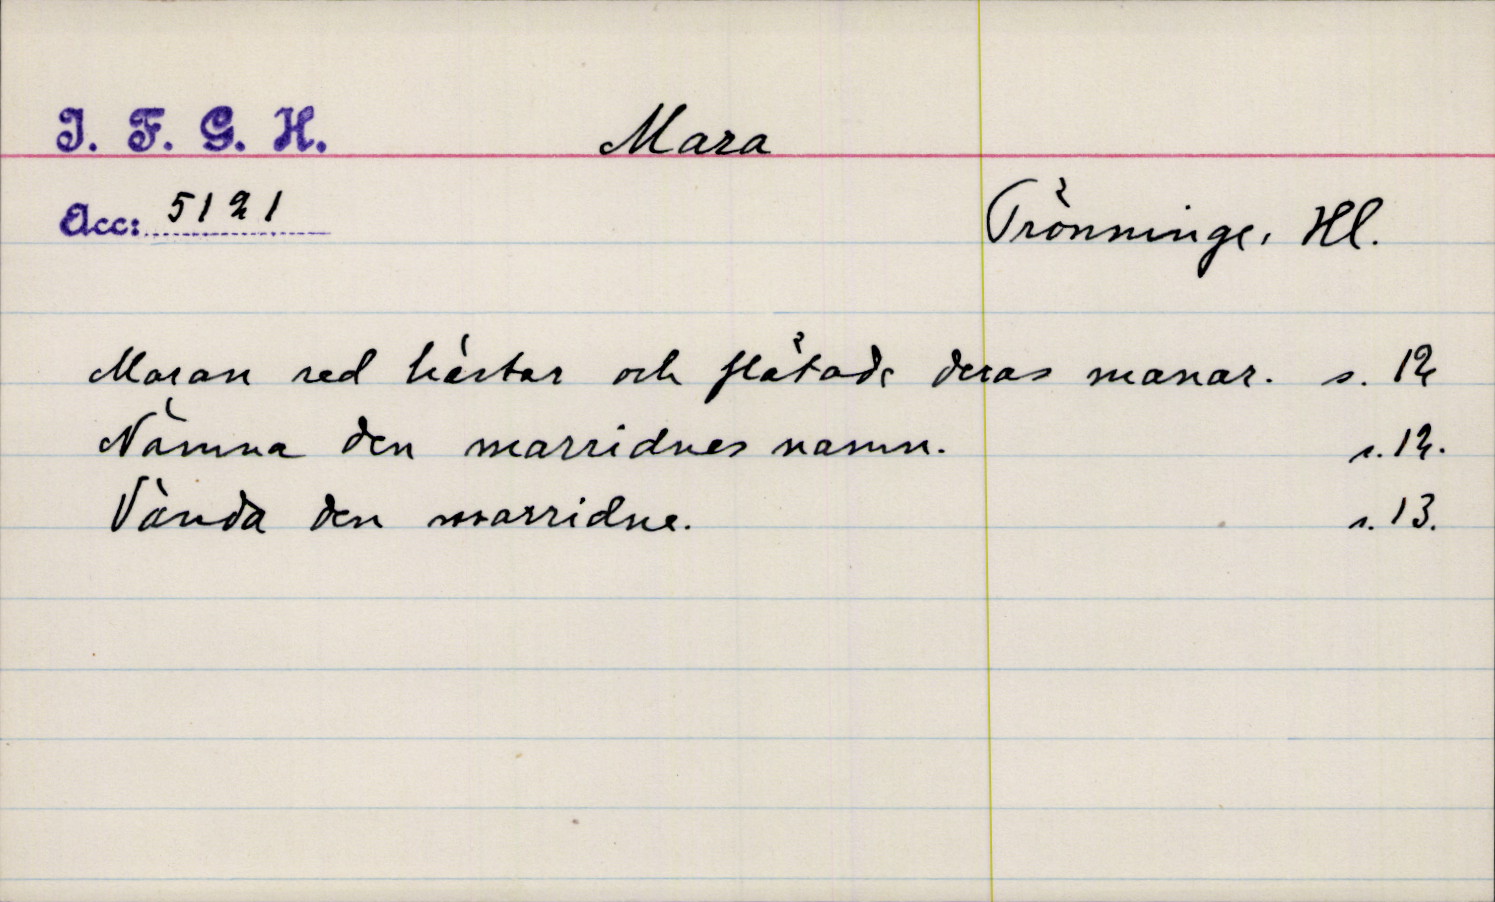 I. F. G. H.
Mara
Acc: 5121
Trönninge, Hl.
Maran red hästar och flätade deras manar. s. 12
Nämna den marridnes namn. s. 12.
Vända den marridne. s. 13.